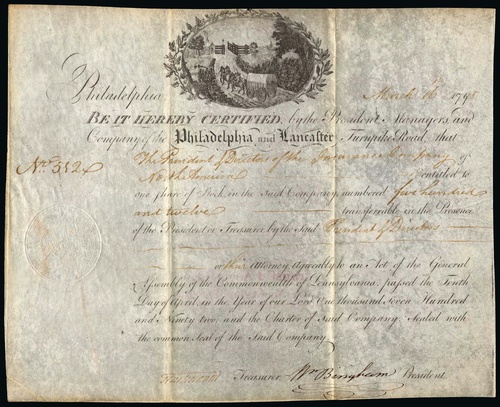 Philadelphia March 16 1795
BE IT HEREBY CERTIFIED, by the President, Managers, and
Company of the Philadelphia and Lancaster Turnpike Road, that
The President & Directors of the Insurance Company of
No. 512 North America entitled to
one Share of Stock in the said Company, numbered five hundred
and twelve transferrable in the Presence
of the President or Treasurer by the Said President & Directors
or their Attorney Agreeably to an Act of the General
Assembly of the Commonwealth of Pennsylvania, passed the Tenth
Day of April, in the Year of our Lord One thousand Seven Hundred
and Ninety two; and the Charter of Said Company, Sealed with
the common Seal of the Said Company.
Treasurer. Wm Bingham President.